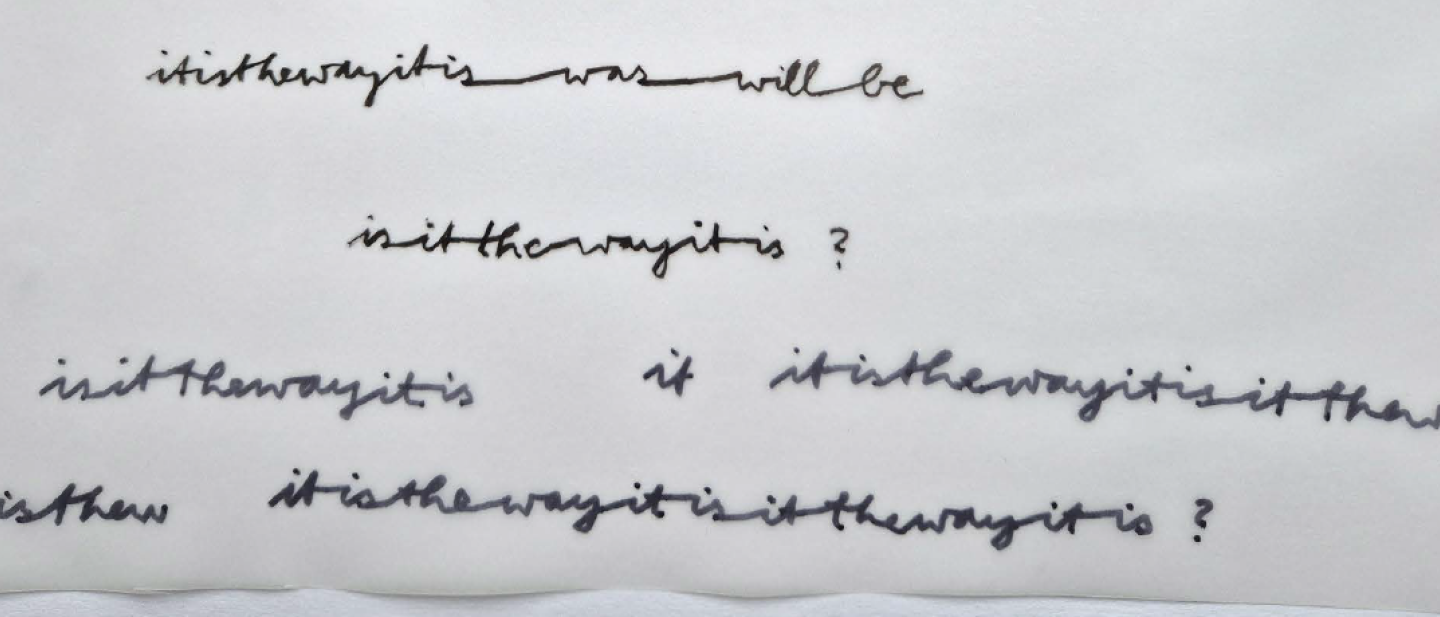 itisthewayitis was will be
isitthewayitis ?
isitthewayitis it itisthewayitisitthew
isthew itisthewayitisitthewayitis ?